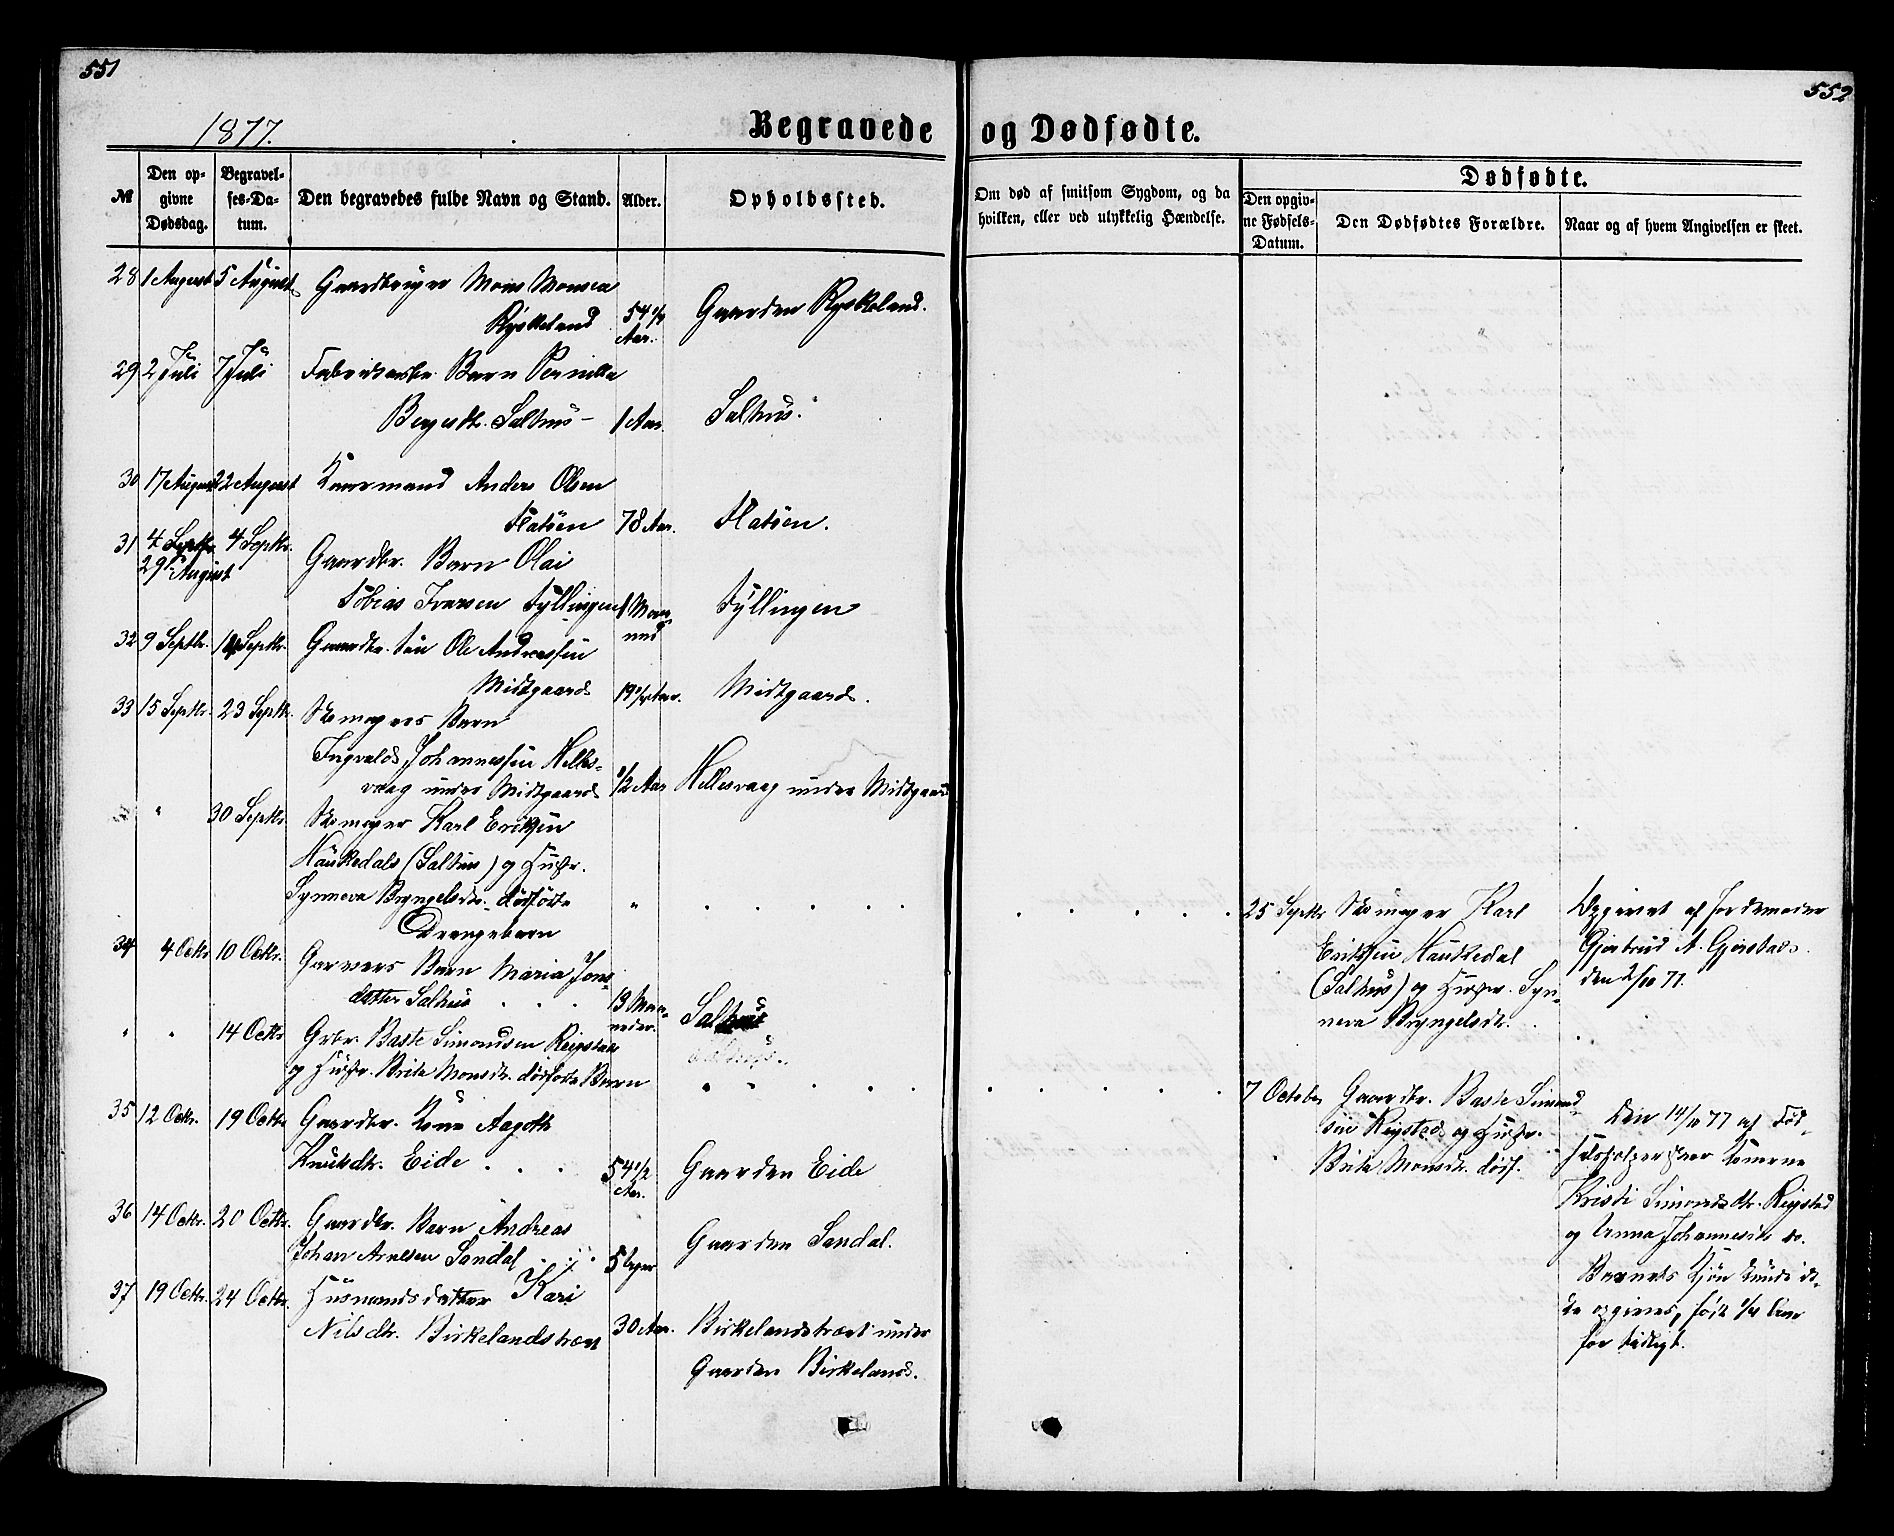 551
552
1877.
Begravede og Dødfødte.
№
Den opgivne Dødsdag.
Begravelses-Datum.
Den begravedes fulde Navn og Stand.
Alder.
Opholdssted.
Om død af smitsom Sygdom, og da hvilken, eller ved ulykkelig Hændelse.
Dødfødte.
Den opgivne Fødsels-Datum.
Den Dødfødtes Forældre.
Naar og af hvem Angivelsen er skeet.
28 1 August 5 August Gaardbruger Mons Monsen
Ryskeland 54 1/4 Aar. Gaarden Ryskeland.
29 2 Juli 7 Juli Fabrikarb. Barn Pernille
Bergesdtr. Salhus 1 Aar Salhus.
30 17 August 22 August Kaarmand Anders Olsen
Flatøen 78 Aar. Flatøen.
31 4 Septbr. 4 Septbr. Gaardbr. Barn Olai
29 August
Tobias Iversen Fyllingen 1 Maaned Fyllingen
32 9 Septbr. Septbr. Gaardbr. Søn Ole Andreassen
Midtgaard 19 Aar. Midtgaard.
33 15 Septbr. 23 Septb. Skomagers Barn
Ingvald Johannessen Helles-
vaag under Midtgaard 1/2 Aar Hellesvaag under Midtgaard
" 30 Septbr. Skomager Karl Eriksen
Haukedal (Salhus) og Hustr.
Synneva Bryngelsdtr. dødfødte "
Drengebarn
25 Septbr Skomager Karl
Eriksen Haukedal
(Salhus) og Hustr. Syn-
neva Bryngelsdtr.
Opgivet af Jordemoder
Gjertrud A. Gjerstad
den 2/10 77.
34 4 Octbr 10 Octbr. Garvers Barn Maria Jons-
datter Salhus 13 Maaneder. Salhus
Salhus.
" " 14 Octbr Grbr. Baste Simonsen Reigstad
og Hustr. Brita Monsdtr. dødfødte Barn "
7 October Gaardbr. Baste Simond-
sen Reigstad og Hustr.
Brita Monsdtr. dødf.
Den 14/10 77 af Fød-
selshjelperskaer Konerne
Kristi Simonsdtr. Reigstad
og Anna Johannesdtr. do.
Barnets Kjøn kunde ik-
ke opgives, født 1/4 Aar
for tidligt.
35 12 Octbr. 19 Octbr Gaardbr. Kone Aagoth
Knutsdtr. Eide 54 1/2 Aar. Gaarden Eide
36 14 Octbr. 20 Octbr. Gaardbr. Barn Andreas
Johan Arnesen Sandal 5 Gaarden Sandal.
37 19 Octbr. 24 Octbr. Husmandsdatter Kari
Nilsdtr. Birkelandstræet 30 Aar. Birkelandstræet under
Gaarden Birkeland.